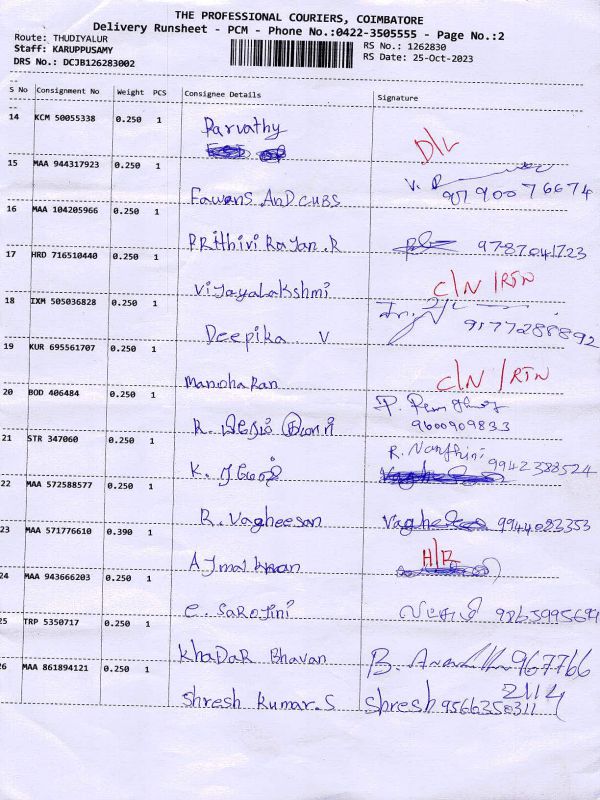 THE PROFESSIONAL COURIERS, COIMBATORE
Delivery Runsheet - PCM - Phone No.:0422-3505555 - Page No.:2
Route: THUDIYALUR
Staff: KARUPPUSAMY
DRS No.: DCJB126283002
RS No.: 1262830
RS Date: 25-Oct-2023
S No Consignment No Weight PCS Consignee Details Signature
14 KCM 50055338 0.250 1 Parvathy D/L
15 MAA 944317923 0.250 1 Fawens AND CUBS V. 9790076674
16 MAA 104205966 0.250 1 PRithivi Rajan.R 9787041723
17 HRD 716510440 0.250 1 Vijayalakshmi C/N /RTN
18 IXM 505036828 0.250 1 Deepika V 9177288892
19 KUR 695561707 0.250 1 Manoharan C/N /RTN
20 BOD 406484 0.250 1 R. P. 9600909833
21 STR 347060 0.250 1 K. ரமேஷ் R. Nanthini 9942388524
22 MAA 572588577 0.250 1 R. Vagheesan 9944023353
23 MAA 571776610 0.390 1 Ajmal khan
24 MAA 943666203 0.250 1 C. SaRojini
25 TRP 5350717 0.250 1 KhaDaR Bhavan B. 967766
2114
26 MAA 861894121 0.250 1 Shresh Kumar.S Shresh 9566350311